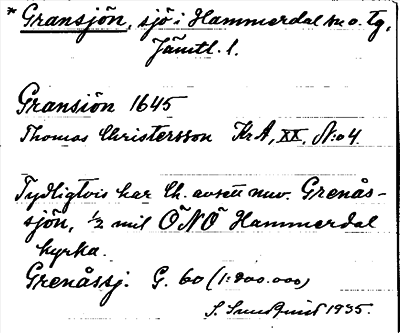 * Gransjön, sjö i Hammerdal s. o. tg,
Jämtl. l.
Gransiön 1645
Thomas Christersson KrA, XX, N:o 4.
Tydligtvis har Ch. avsett nuv. Grenås-
sjön, ½ mil ÖNÖ Hammerdal
kyrka.
Grenåssj. G. 60 (1:200.000)
S. Sundqvist 1935.